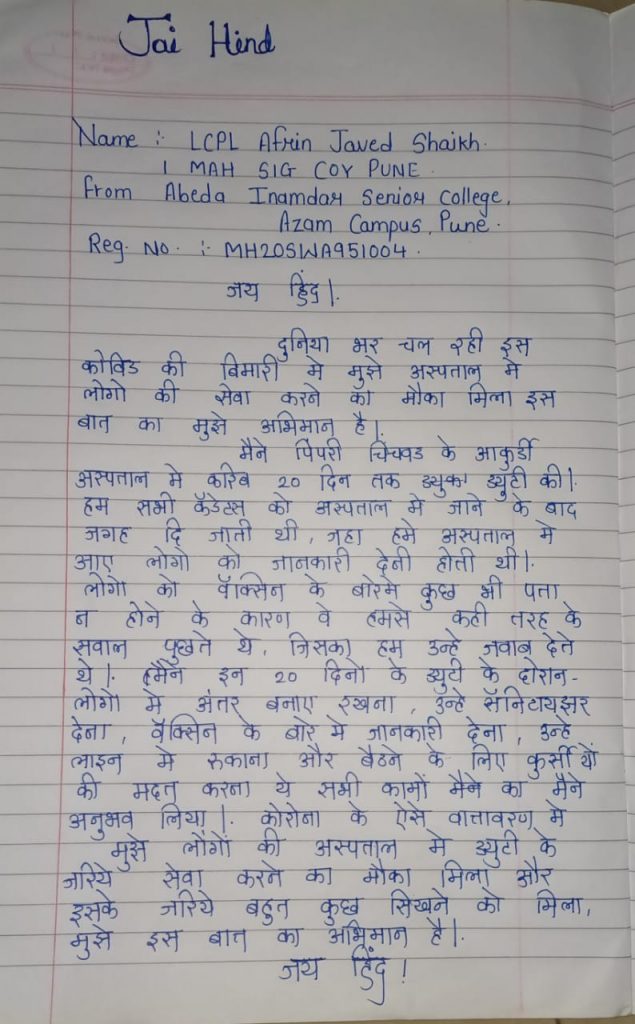 Jai Hind
Name :- LCPL Afrin Javed Shaikh.
1 MAH SIG COY PUNE
From Abeda Inamdar Senior College,
Azam Campus, Pune.
Reg. No. :- MH20SWA951004.
जय हिंद|.
दुनिया भर चल रही इस
कोविड की बिमारी मे मुझे अस्पताल मे
लोगो की सेवा करने का मौका मिला इस
बात का मुझे अभिमान है|.
मैने पिंपरी चिंचवड के आकुर्डी
अस्पताल मे करिब 20 दिन तक ड्युटी की|.
हम सभी कॅडेटस को अस्पताल मे जाने के बाद
जगह दि जाती थी, जहा हमे अस्पताल मे
आए लोगो को जानकारी देनी होती थी|.
लोगो को वॅक्सिन के बारेमे कुछ भी पता
न होने के कारण वे हमसे कही तरह के
सवाल पुछते थे, जिसका हम उन्हे जवाब देते
थे|. मैने इन 20 दिनो के ड्युटी के दोरान-
लोगो मे अंतर बनाए रखना, उन्हे सॅनिटायझर
देना, वॅक्सिन के बारे मे जानकारी देना, उन्हे
लाइन मे रुकाना और बैठने के लिए कुर्सीयों
की मदत करना ये सभी कामों मैने का मैने
अनुभव लिया|. कोरोना के ऐसे वातावरण मे
मुझे लोगों की अस्पताल मे ड्युटी के
जरिये सेवा करने का मौका मिला और
इसके जरिये बहुत कुछ सिखने को मिला,
मुझे इस बात का अभिमान है|.
जय हिंद!